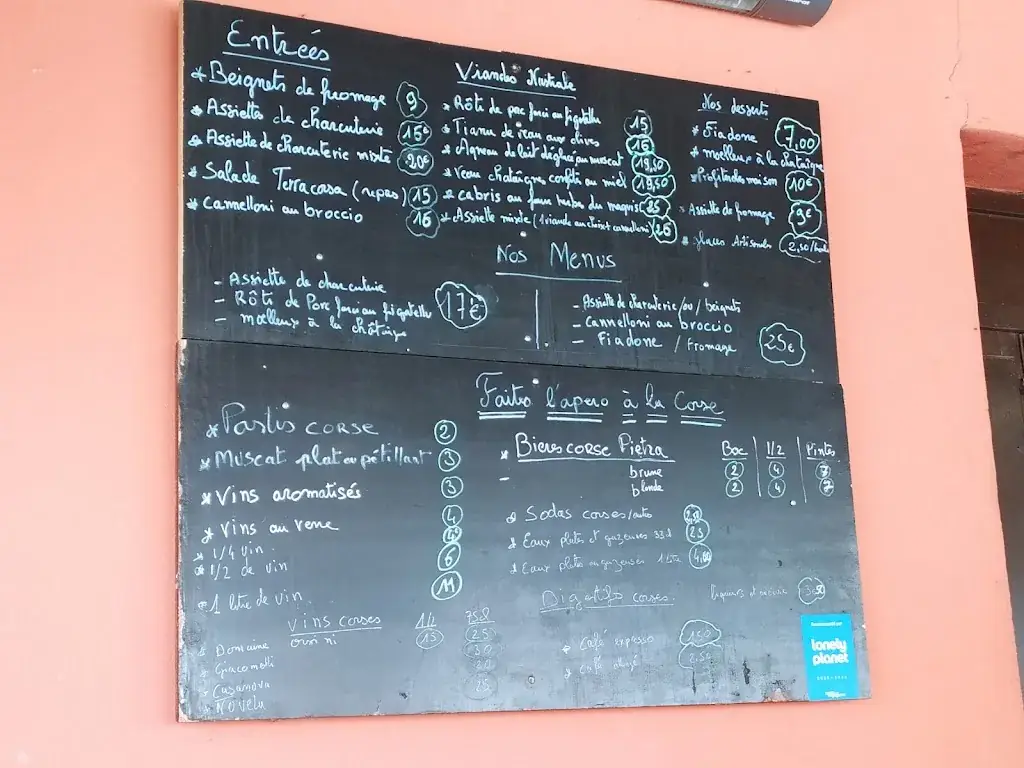 Entrées
* Beignets de fromage 9
* Assiette de charcuterie 15€
* Assiette de charcuterie mixte 20€
* Salade Terra casa (repas) 15
* Cannelloni au broccio 16
Viandes Nustrale
* Rôte de porc farci au figatellu 15
* Tianu de veau aux olives 15
* Agneau de lait déglacé au muscat 19,50
* Veau chataîgne, confit au miel 19,50
* Cabris au faux herbes du maquis 25
* Assiette mixte (1 viande au choix + cannelloni) 26
Nos desserts
* Fiadone 7,00
* moelleux à la chataigne
* Profiteroles maison 10€
* Assiette de fromage 9€
* glaces Artisanales 2,50/boule
Nos Menus
- Assiette de charcuterie
- Rôte de Porc farci au figatellu
- Moelleux à la châtaigne
17€
- Assiette de charcuterie /ou/ beignets
- Cannelloni au broccio
- Fiadone / Fromage
25€
Faites l'apero à la Corse
* Pastis corse 2
* Muscat plat ou pétillant 3
* Vins aromatisés 3
* Vins au verre 4
* 1/4 vin
* 1/2 de vin 6
* 1 litre de vin 11
* Bieres corse Pietra Boc 1/2 Pintes
brune 2 4 7
- blonde 2 4 7
* Sodas corses/autres
* Eaux plates et gazeuses 33cl
* Eaux plates ou gazeuses 1 litre 4,00
Digestifs corses
3,50
* Café expresso 1,50
* Café 2,50
Vins corses 1/2 75cl
* Domaine 15 25
* Giacometti
* Casanova
* Novella
lonely planet